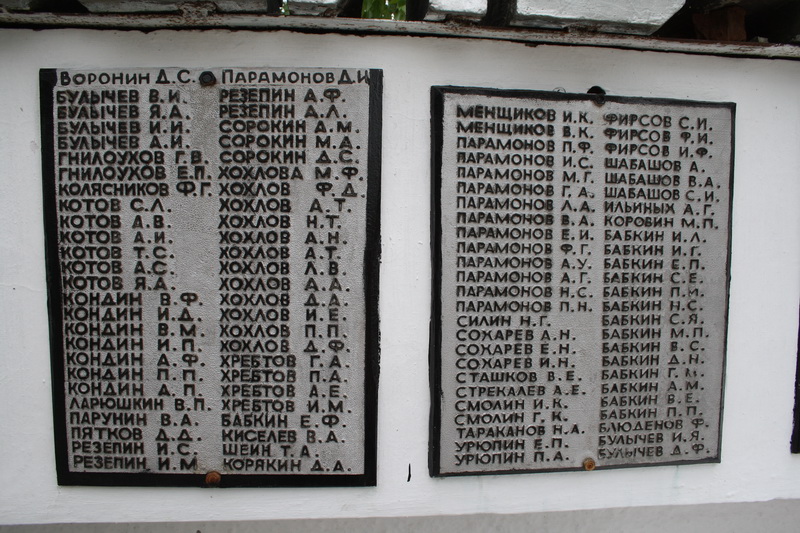 ВОРОНИН Д.С.
БУЛЫЧЕВ В.И.
БУЛЫЧЕВ Я.А.
БУЛЫЧЕВ И.И.
БУЛЫЧЕВ А.И.
ГНИЛОУХОВ Г.В.
ГНИЛОУХОВ Е.П.
КОЛЯСНИКОВ Ф.Г.
КОТОВ С.Л.
КОТОВ А.В.
КОТОВ А.И.
КОТОВ Т.С.
КОТОВ А.С.
КОТОВ Я.А.
КОНДИН В.Ф.
КОНДИН И.Д.
КОНДИН В.М.
КОНДИН И.П.
КОНДИН А.Ф.
КОНДИН П.П.
КОНДИН А.П.
ЛАРЮШКИН В.П.
ПАРУНИН В.А.
ПЯТКОВ Д.Д.
РЕЗЕПИН И.С.
РЕЗЕПИН И.М
ПАРАМОНОВ Д.И
РЕЗЕПИН А.Ф.
РЕЗЕПИН А.Л.
СОРОКИН А.М.
СОРОКИН М.А.
СОРОКИН Д.С.
ХОХЛОВА М.Ф.
ХОХЛОВ Ф.Д.
ХОХЛОВ А.Т.
ХОХЛОВ Н.Т.
ХОХЛОВ А.Н.
ХОХЛОВ А.Т.
ХОХЛОВ Л.В.
ХОХЛОВ А.А.
ХОХЛОВ Д.А.
ХОХЛОВ И.Е.
ХОХЛОВ П.П.
ХОХЛОВ Д.Ф.
ХРЕБТОВ Г.А.
ХРЕБТОВ П.А.
ХРЕБТОВ А.Е.
ХРЕБТОВ И.М.
БАБКИН Е.Ф.
КИСЕЛЕВ В.А.
ШЕИН Т.А.
КОРЯКИН Д.А.
МЕНЩИКОВ И.К.
МЕНЩИКОВ В.К.
ПАРАМОНОВ П.Ф.
ПАРАМОНОВ И.С.
ПАРАМОНОВ М.Г.
ПАРАМОНОВ Г.А.
ПАРАМОНОВ Л.А.
ПАРАМОНОВ В.А.
ПАРАМОНОВ Е.И.
ПАРАМОНОВ Ф.Г.
ПАРАМОНОВ А.У.
ПАРАМОНОВ А.Г.
ПАРАМОНОВ Н.С.
ПАРАМОНОВ П.Н.
СИЛИН Н.Г.
СОХАРЕВ А.Н.
СОХАРЕВ Е.Н.
СОХАРЕВ И.Н.
СТАШКОВ В.Е.
СТРЕКАЛЕВ А.Е.
СМОЛИН И.К.
СМОЛИН Г.К.
ТАРАКАНОВ Н.А.
УРЮПИН Е.П.
УРЮПИН П.А.
ФИРСОВ С.И.
ФИРСОВ Ф.И.
ФИРСОВ И.Ф.
ШАБАШОВ А.
ШАБАШОВ В.А.
ШАБАШОВ С.И.
ИЛЬИНЫХ А.Г.
КОРОВИН М.П.
БАБКИН И.Л.
БАБКИН И.Г.
БАБКИН Е.П.
БАБКИН С.Е.
БАБКИН П.М.
БАБКИН Н.С.
БАБКИН С.Я.
БАБКИН М.П.
БАБКИН В.С.
БАБКИН Д.Н.
БАБКИН Г.М.
БАБКИН А.М.
БАБКИН В.Е.
БАБКИН П.П.
БЛЮДЕНОВ Ф.
БУЛЫЧЕВ И.Я.
БУЛЫЧЕВ Д.Ф.